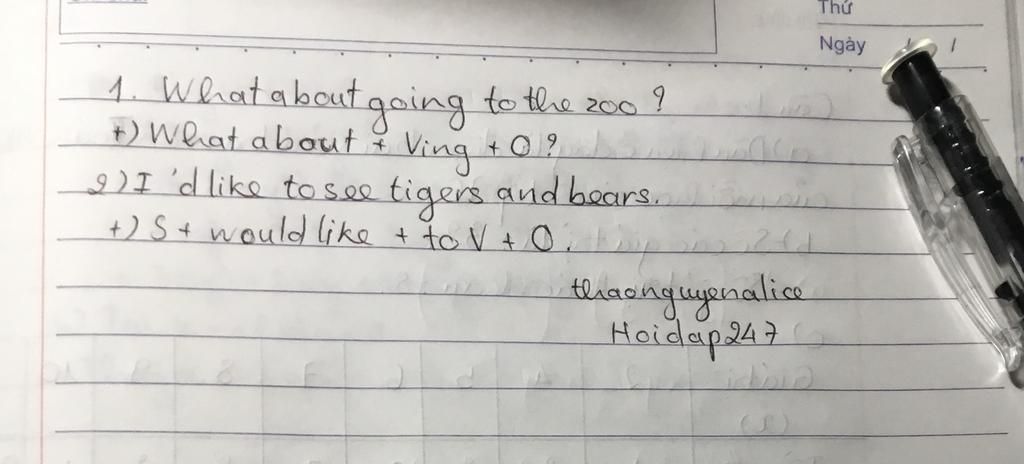 Thứ
Ngày / /
1. What about going to the zoo ?
+) What about + Ving + O ?
2) I'd like to see tigers and bears.
+) S + would like + to V + O.
thaonguyenalice
Hoidap247